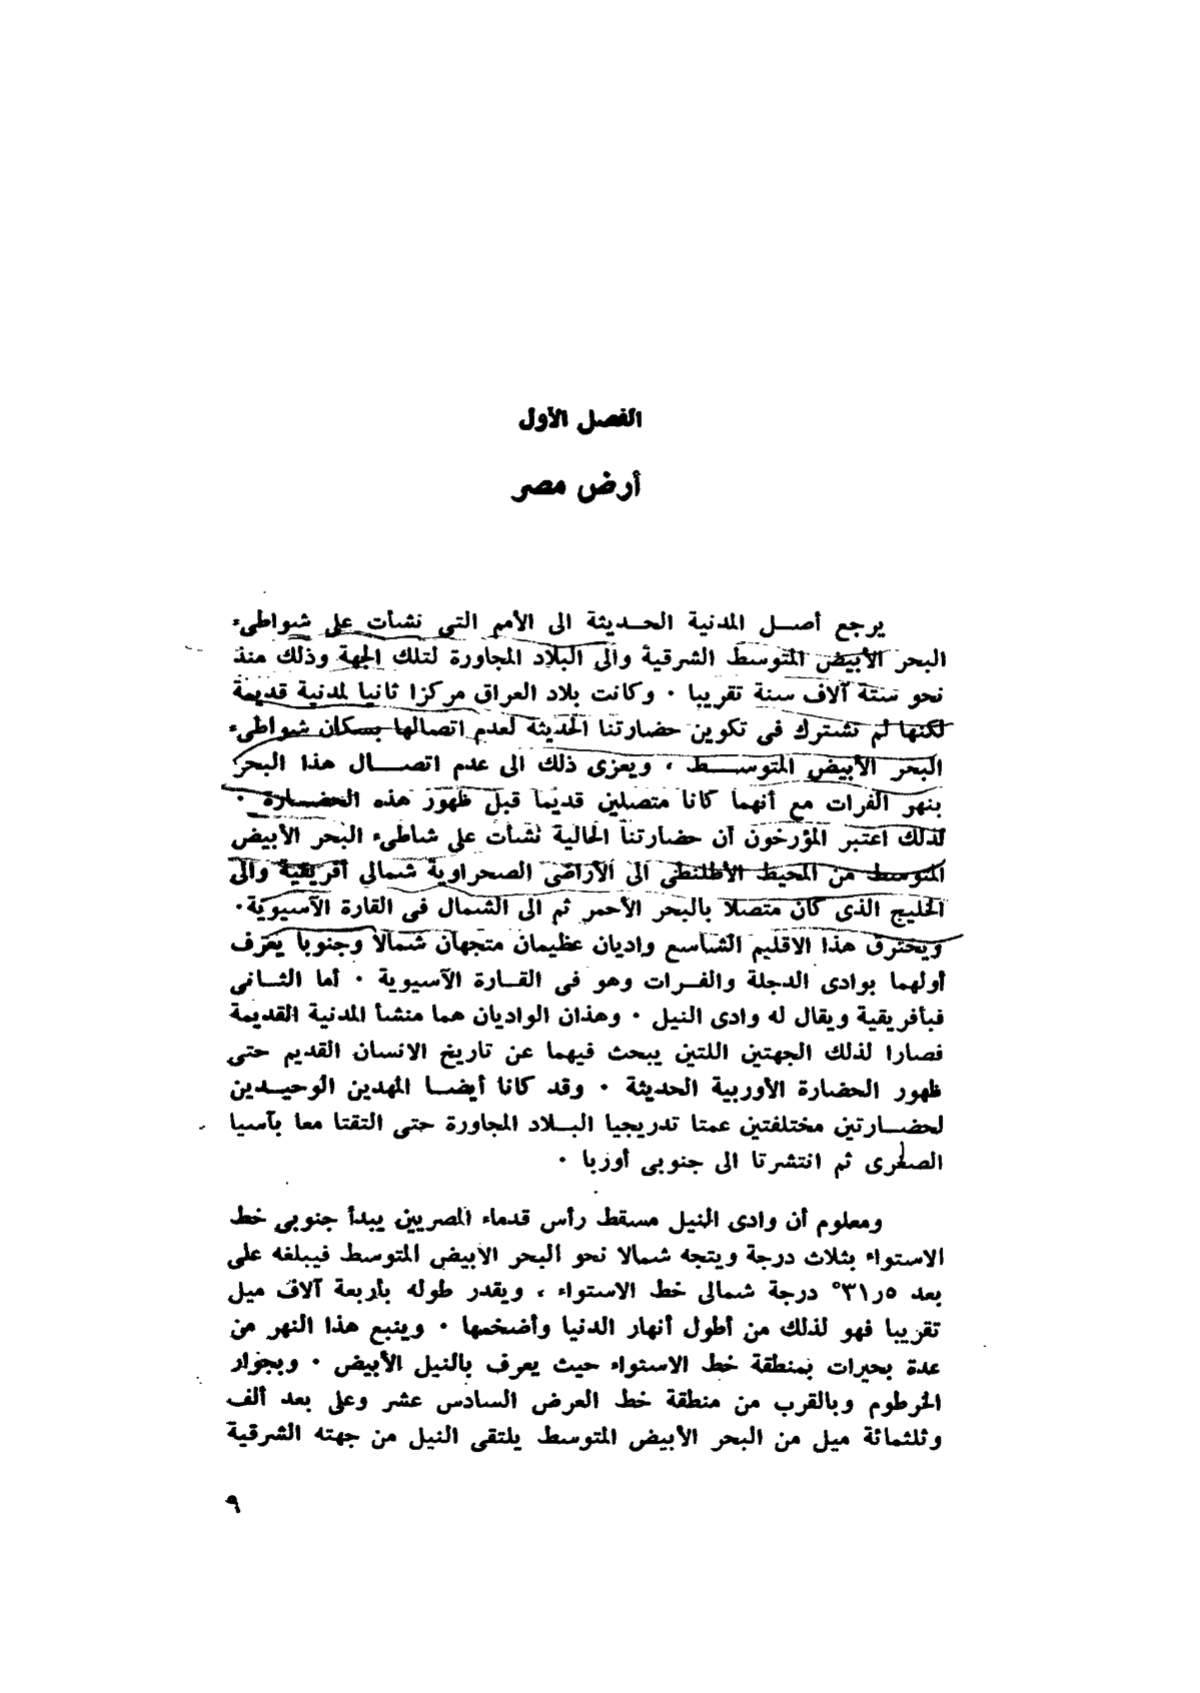 الفصل الأول
أرض مصر
يرجع أصل المدنية الحديثة الى الأمم التى نشأت على شواطىء
البحر الأبيض المتوسط الشرقية والى البلاد المجاورة لتلك الجهة وذلك منذ
نحو ستة آلاف سنة تقريبا ٠ وكانت بلاد العراق مركزا ثانيا لمدنية قديمة
لكنها لم تشترك فى تكوين حضارتنا الحديثة لعدم اتصالها بسكان شواطىء
البحر الأبيض المتوسط ، ويعزى ذلك الى عدم اتصال هذا البحر
بنهر الفرات مع أنهما كانا متصلين قديما قبل ظهور هذه الحضارة ٠
لذلك اعتبر المؤرخون أن حضارتنا الحالية نشأت على شاطىء البحر الأبيض
المتوسط من المحيط الأطلنطى الى الأراضى الصحراوية شمالى أفريقية والى
الخليج الذى كان متصلا بالبحر الأحمر ثم الى الشمال فى القارة الآسيوية٠
ويخترق هذا الاقليم الشاسع واديان عظيمان متجهان شمالا وجنوبا يعرف
أولهما بوادى الدجلة والفرات وهو فى القارة الآسيوية ٠ أما الثانى
فبأفريقية ويقال له وادى النيل ٠ وهذان الواديان هما منشأ المدنية القديمة
فصارا لذلك الجهتين اللتين يبحث فيهما عن تاريخ الانسان القديم حتى
ظهور الحضارة الأوربية الحديثة ٠ وقد كانا أيضا المهدين الوحيدين
لحضارتين مختلفتين عمتا تدريجيا البلاد المجاورة حتى التقتا معا بآسيا
الصغرى ثم انتشرتا الى جنوبى أوربا ٠
ومعلوم أن وادى النيل مسقط رأس قدماء المصريين يبدأ جنوبى خط
الاستواء بثلاث درجة ويتجه شمالا نحو البحر الأبيض المتوسط فيبلغه على
بعد ٥ر٣١° درجة شمالى خط الاستواء ، ويقدر طوله بأربعة آلاف ميل
تقريبا فهو لذلك من أطول أنهار الدنيا وأضخمها ٠ وينبع هذا النهر من
عدة بحيرات بمنطقة خط الاستواء حيث يعرف بالنيل الأبيض ٠ وبجوار
الخرطوم وبالقرب من منطقة خط العرض السادس عشر وعلى بعد ألف
وثلثمائة ميل من البحر الأبيض المتوسط يلتقى النيل من جهته الشرقية
٩